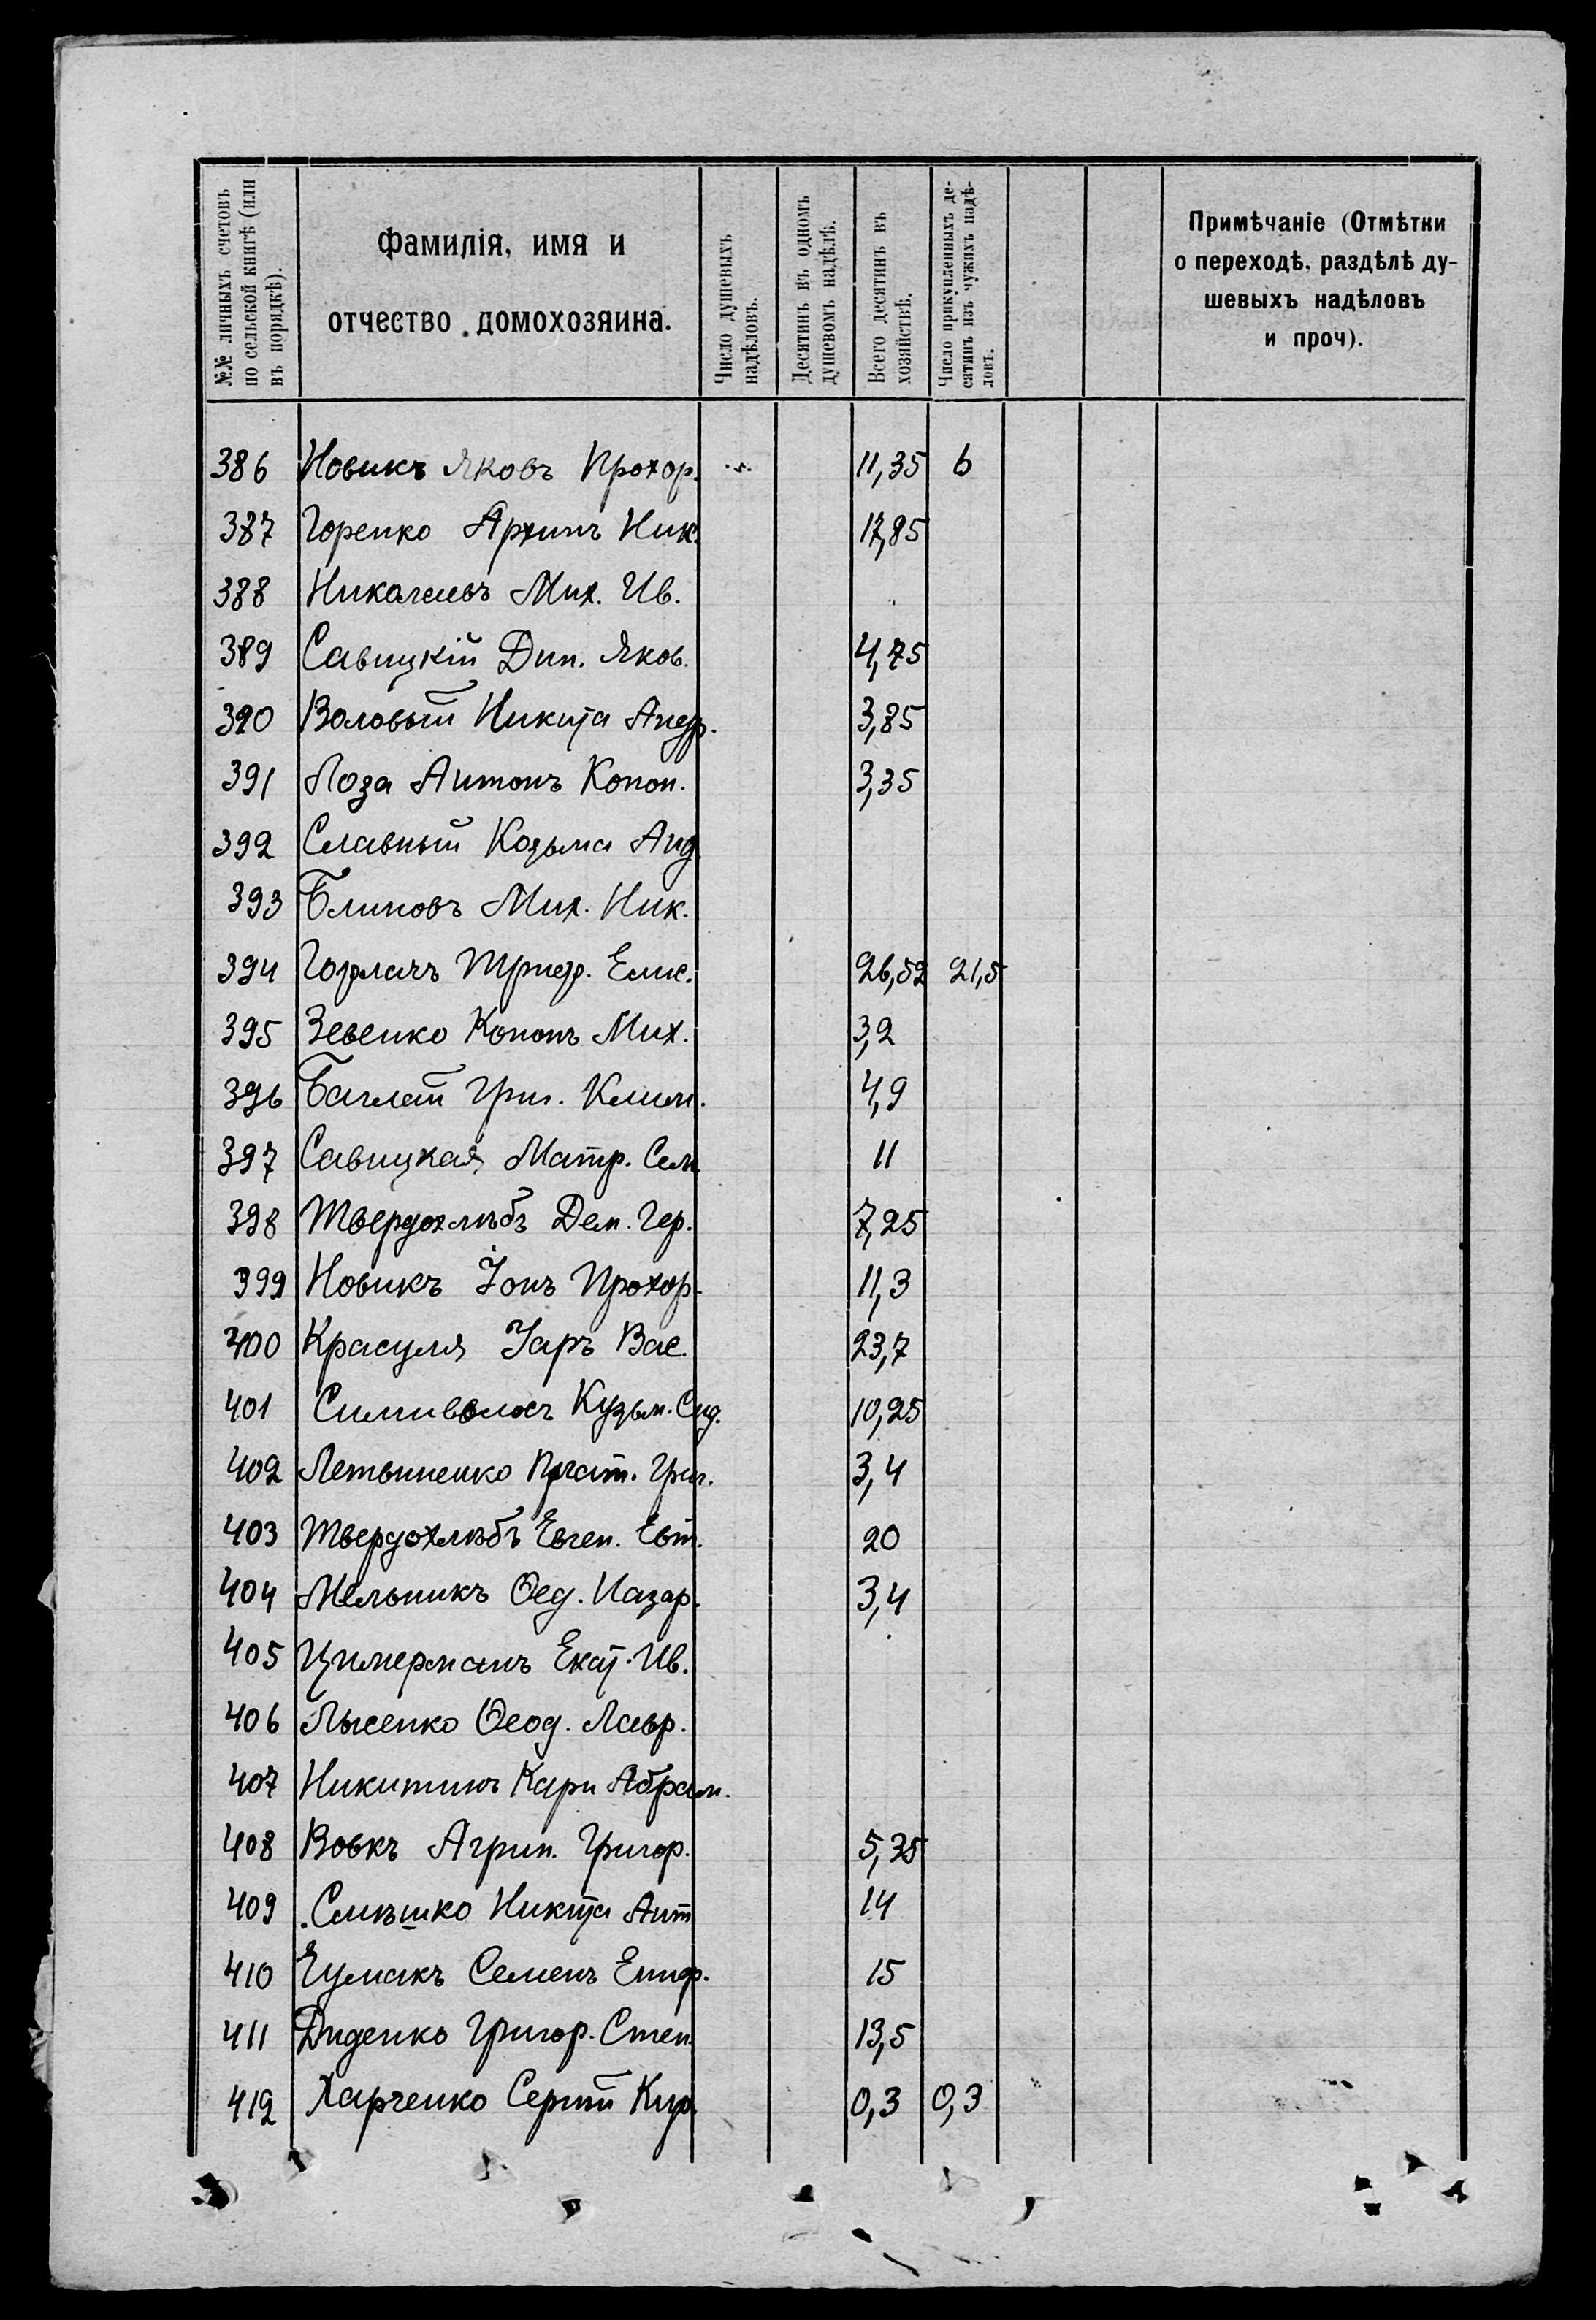 №№ личныхъ счетовъ
по сельской книгѣ (или
въ порядкѣ).
Фамилія, имя и
отчество домохозяина.
Число душевыхъ
надѣловъ.
Десятинъ въ одномъ
душевомъ надѣлѣ.
Всего десятинъ въ
хозяйствѣ.
Число прикупленныхъ де-
сятинъ изъ чужихъ надѣ-
ловъ.
Примѣчаніе (Отмѣтки
о переходѣ, раздѣлѣ ду-
шевыхъ надѣловъ
и проч).
386 Новикъ Яковъ Прохор. 11,35 6
387 Горенко Архипъ Ник. 12,85
388 Николаевъ Мих. Ив.
389 Савицкій Дим. Яков. 4,75
390 Воловый Никита Андр. 3,85
391 Лоза Антонъ Конон. 3,35
392 Славный Козьма Анд.
393 Блиновъ Мих. Ник.
394 Горлачъ Триф. Елис. 26,52 21,5
395 Зевенко Кононъ Мих. 3,2
396 Баглай Григ. Клим. 4,9
397 Савицкая Матр. Сем. 11
398 Твердохлѣбъ Дем. Гер. 7,25
399 Новикъ Іонъ Прохор. 11,3
400 Красуля Уаръ Вас. 23,7
401 Симиволосъ Кузьм. Сид. 10,25
402 Летвиненко Игнат. Григ. 3,4
403 Твердохлѣбъ Евген. Евт. 20
404 Мельникъ Ѳед. Назар. 3,4
405 Цимерманъ Екат. Ив.
406 Лысенко Ѳеод. Лавр.
407 Никитинъ Карп Абрам.
408 Вовкъ Агрип. Григор. 5,35
409 Смѣшко Никита Ант 14
410 Чумакъ Семенъ Епиф. 15
411 Диденко Григор. Степ. 13,5
412 Харченко Сергій Кир. 0,3 0,3